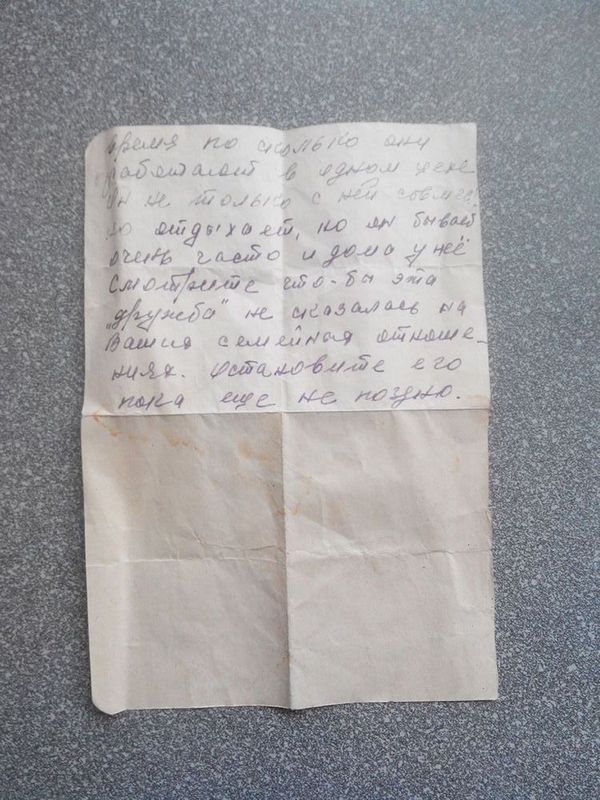 время по сколько они
работают в одном цехе
он не только с ней совмес
но отдыхает, но он бывает
очень часто и дома у неё
Смотрите что-бы эта
"дружба" не сказалась на
Ваших семейных отноше-
ниях. Остановите его
пока еще не поздно.